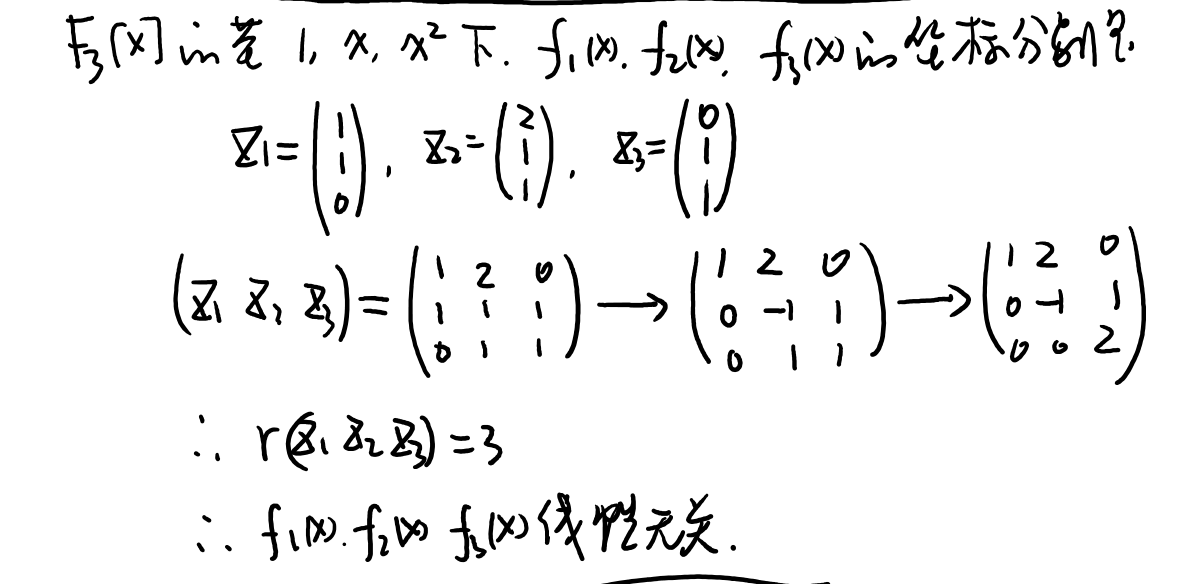 F₃[x]的基 1, x, x² 下. f₁(x). f₂(x). f₃(x)的坐标分别是.
X₁=(1 1 0), X₂=(2 1 1), X₃=(0 1 1)
(X₁ X₂ X₃)=(1 2 0; 1 1 1; 0 1 1)→(1 2 0; 0 -1 1; 0 1 1)→(1 2 0; 0 -1 1; 0 0 2)
∴ r(X₁ X₂ X₃)=3
∴ f₁(x). f₂(x) f₃(x)线性无关.